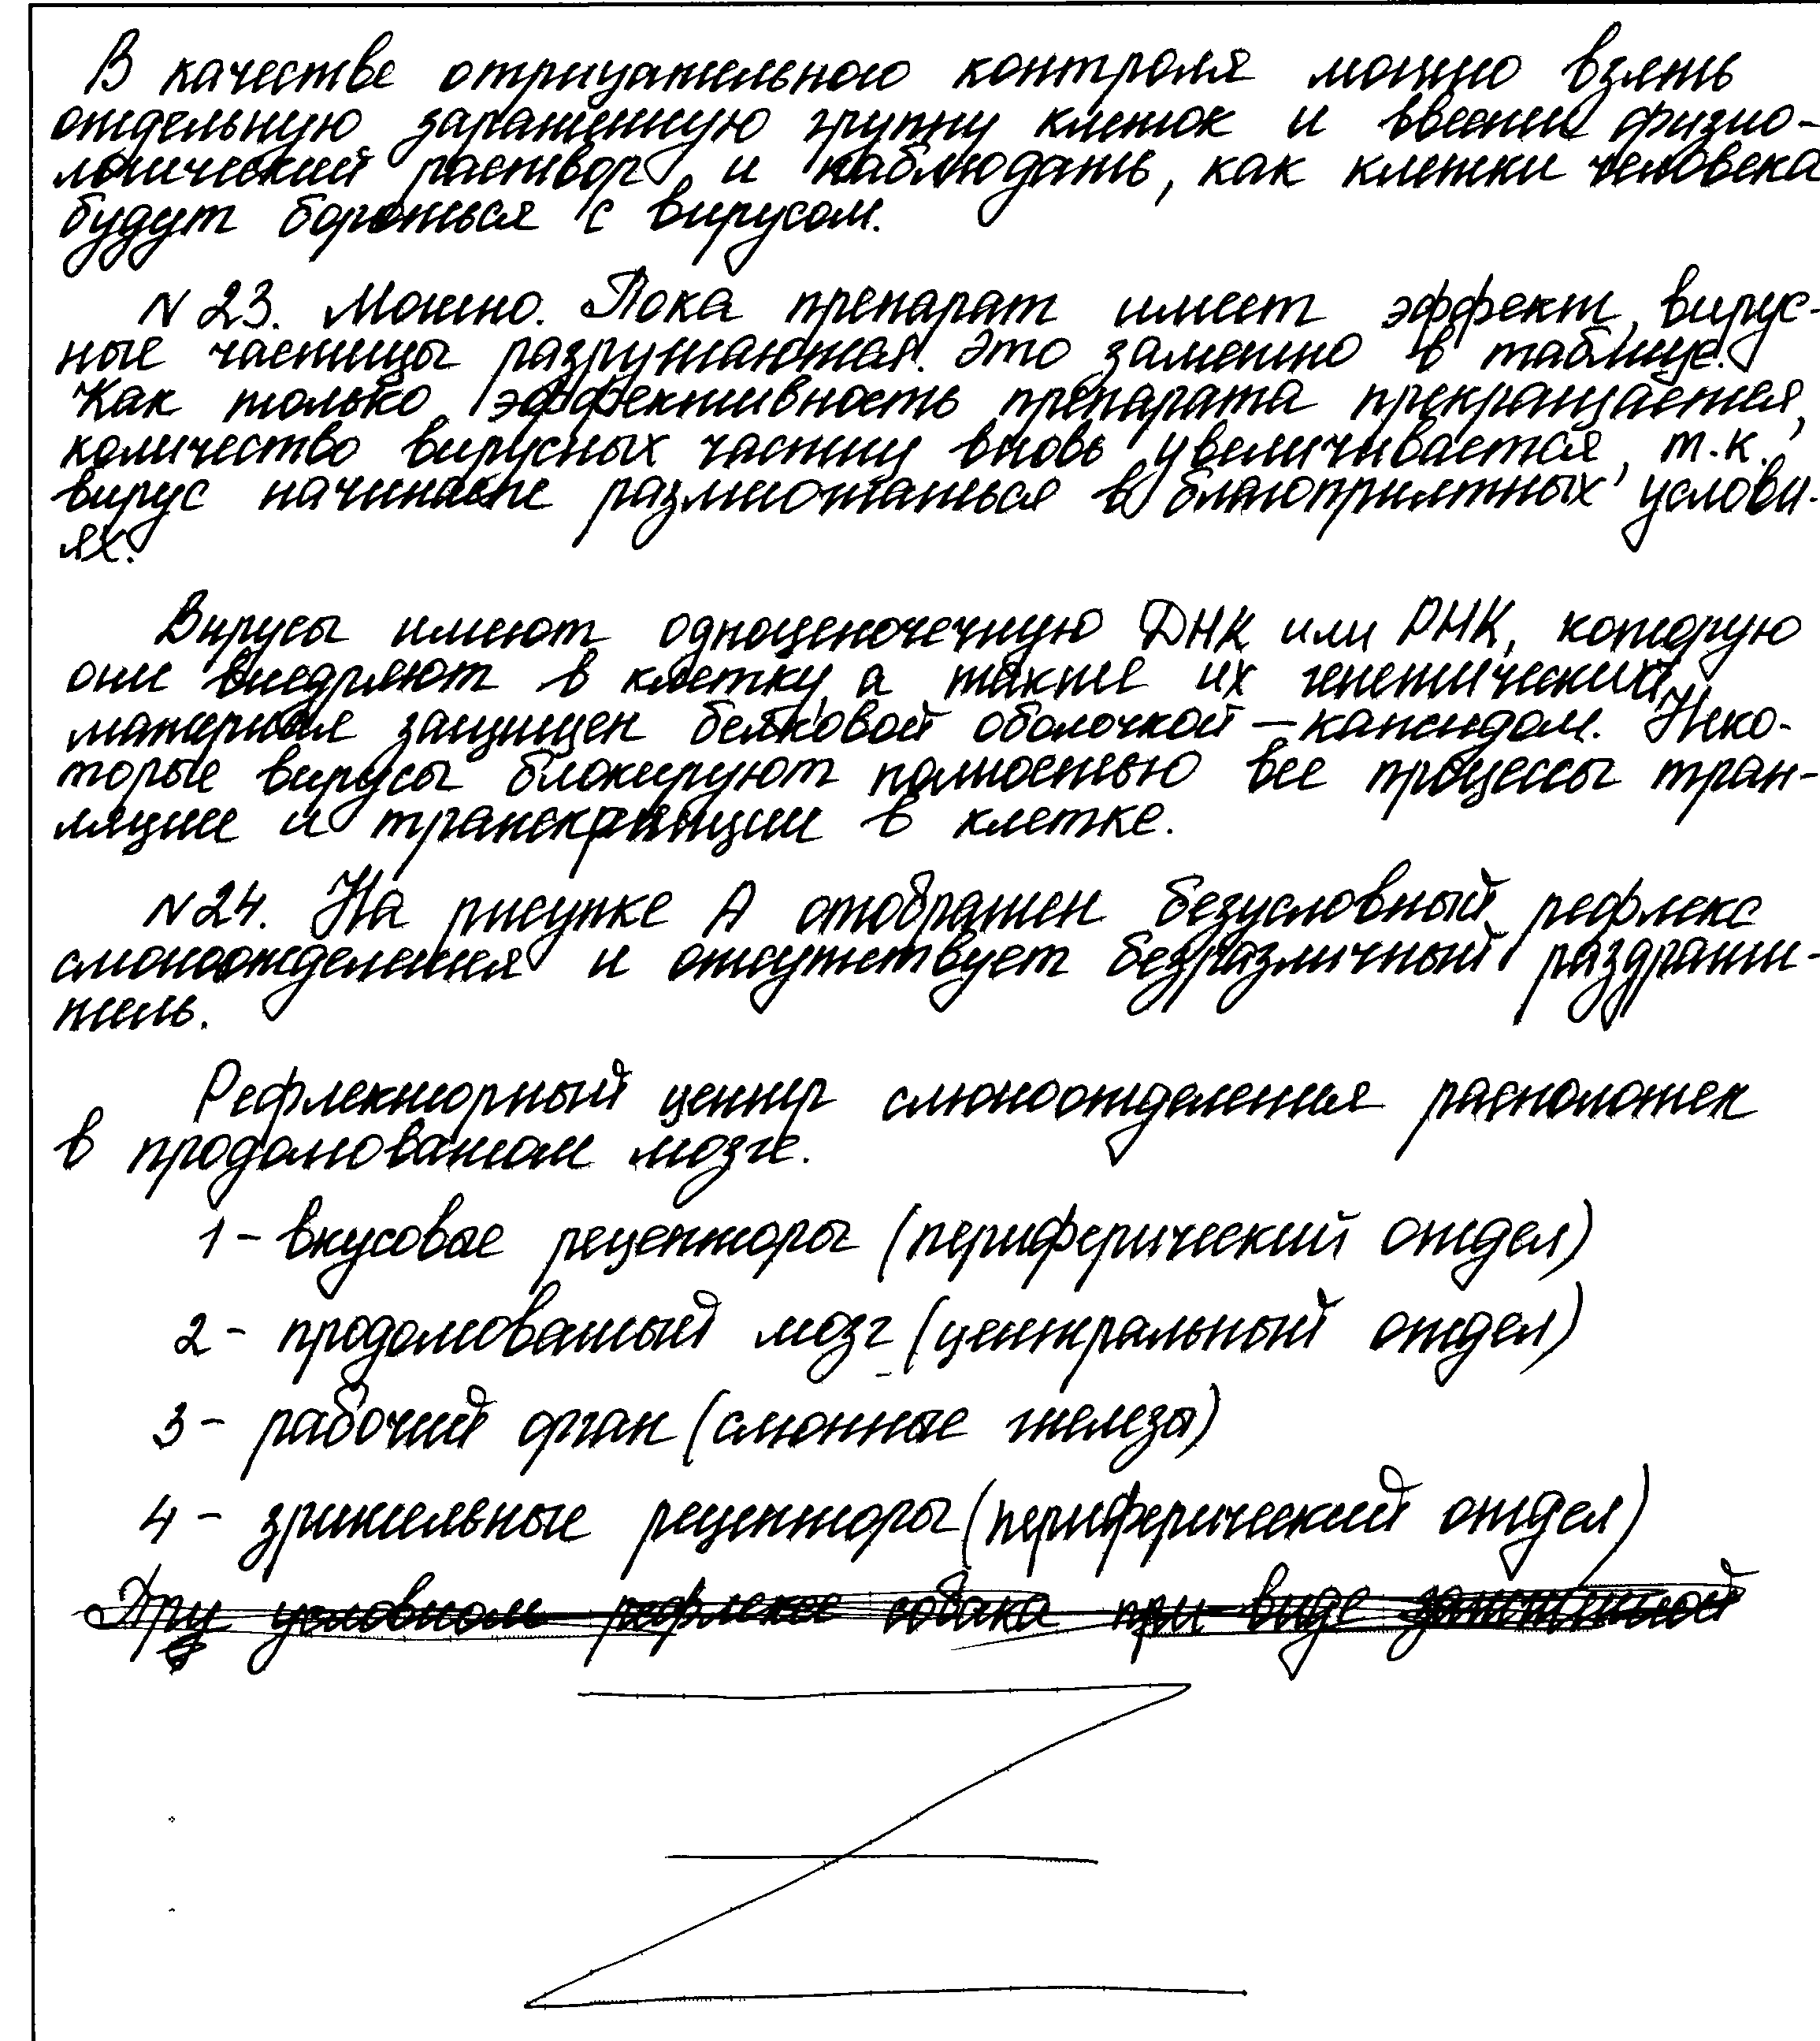 В качестве отрицательного контроля можно взять
отдельную зараженную группу клеток и ввести физио-
логический раствор и наблюдать, как клетки человека
будут бороться с вирусом.
N 23. Можно. Пока препарат имеет эффект, вирус-
ные частицы разрушаются. Это заметно в таблице.
Как только эффективность препарата прекращается,
количество вирусных частиц вновь увеличивается, т.к.
вирус начинает размножаться в благоприятных услови-
ях.
Вирусы имеют одноцепочечную ДНК или РНК, которую
они внедряют в клетку, а также их генетический
материал защищен белковой оболочкой – капсидом. Неко-
торые вирусы блокируют полностью все процессы тран-
ляции и транскрипции в клетке.
N 24. На рисунке А отображен безусловный рефлекс
слюноотделения и отсутствует безразличный раздражи-
тель.
Рефлекторный центр слюноотделения расположен
в продолговатом мозге.
1 – вкусовые рецепторы (периферический отдел)
2 – продолговатый мозг (центральный отдел)
3 – рабочий орган (слюнные железы)
4 – зрительные рецепторы (периферический отдел)
При условном рефлексе собака при виде зажженной